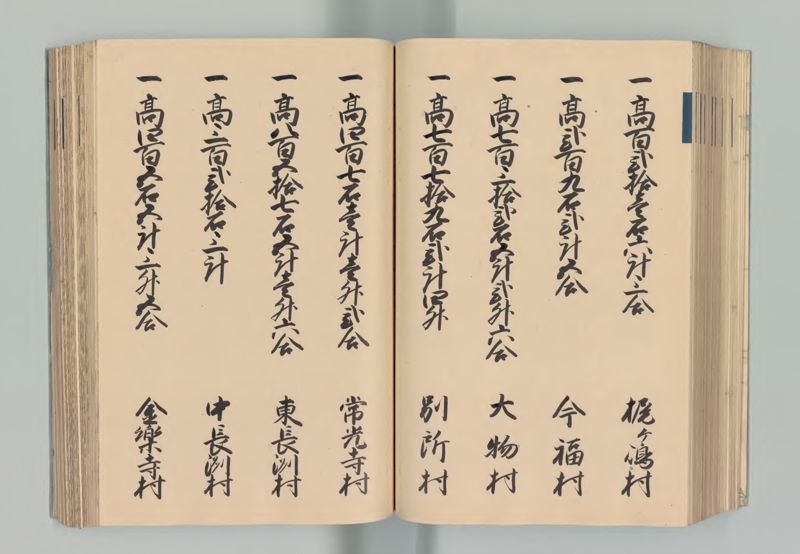 一 高百弐拾壱石六斗三合 梶ヶ嶋村
一 高弐百九石弐斗五合 今福村
一 高七百三拾弐石五斗弐升六合 大物村
一 高七百七拾九石弐斗四升 別所村
一 高四百七石壱斗壱升弐合 常光寺村
一 高八百五拾七石五斗壱升六合 東長洲村
一 高三百弐拾石三斗 中長洲村
一 高四百五石五斗三升五合 金楽寺村